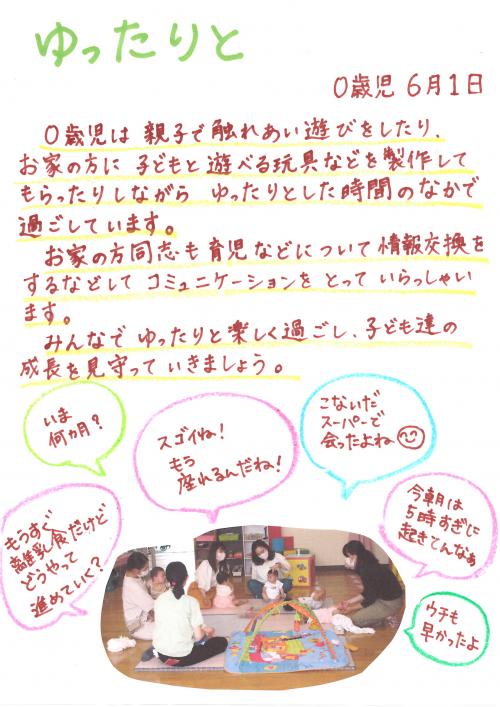 ゆったりと
0歳児 6月1日
0歳児は 親子で触れあい遊びをしたり、
お家の方に 子どもと遊べる玩具などを製作して
もらったりしながら ゆったりとした時間のなかで
過ごしています。
お家の方同志も育児などについて情報交換を
するなどして コミュニケーションを とって いらっしゃい
ます。
みんなで ゆったりと楽しく過ごし、子ども達の
成長を見守って いきましょう。
いま
何ヵ月?
スゴイね!
もう
座れるんだね!
こないだ
スーパーで
会ったよね
今朝は
5時すぎに
起きてんなぁ
もうすぐ
離乳食だけど
どうやって
進めていく?
ウチも
早かったよ